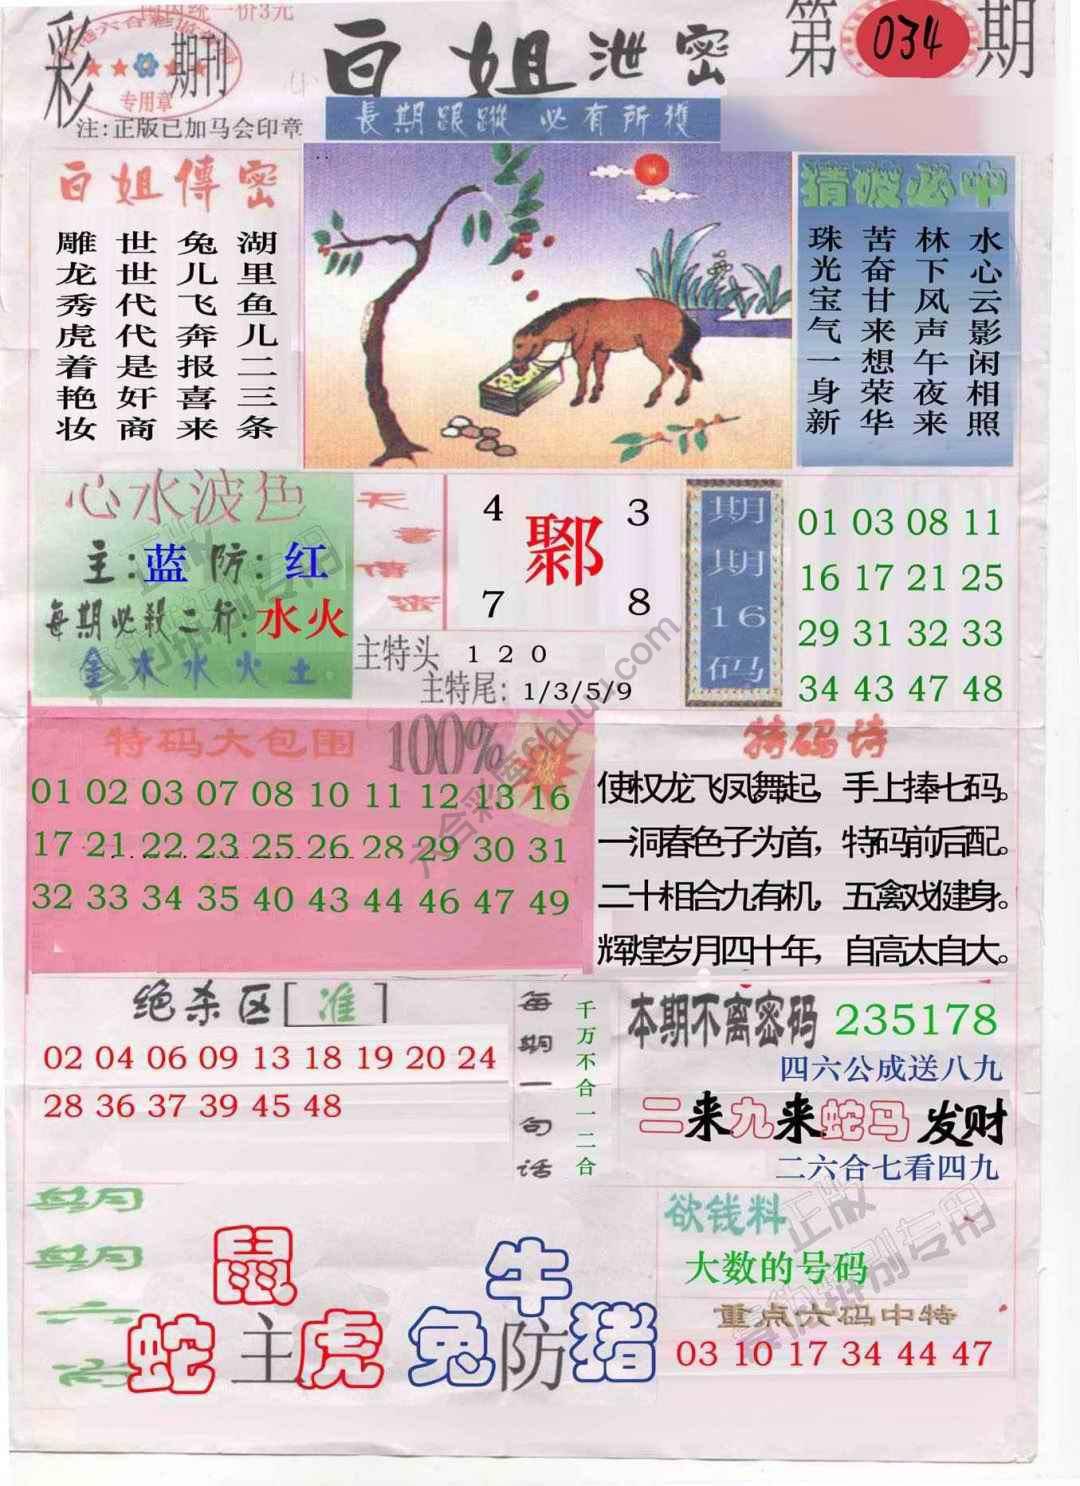 国内统一价3元
彩 期刊
专用章
注:正版已加马会印章
白姐泄密
第 034 期
長期跟蹤 必有所獲
白姐傳密
湖里鱼儿二三条
兔儿飞奔报喜来
世世代代是奸商
雕龙秀虎着艳妆
猜破必中
水心云影闲相照
林下风声午夜来
苦奋甘来想荣华
珠光宝气一身新
心水波色
主:蓝 防:红
每期必殺二行:水火
金木水火土
天書傳密
4 3
7 8
主特头 1 2 0
主特尾: 1/3/5/9
期期16码
01 03 08 11
16 17 21 25
29 31 32 33
34 43 47 48
特码大包围 100%
01 02 03 07 08 10 11 12 13 16
17 21 22 23 25 26 28 29 30 31
32 33 34 35 40 43 44 46 47 49
特码诗
使权龙飞凤舞起,手上捧七码。
一洞春色子为首,特码前后配。
二十相合九有机,五禽戏健身。
辉煌岁月四十年,自高太自大。
绝杀区[准]
02 04 06 09 13 18 19 20 24
28 36 37 39 45 48
每期一句话
千万不合一二合
本期不离密码 235178
四六公成送八九
二来九来蛇马发财
二六合七看四九
鼠
蛇 主 虎
牛
兔 防 猪
欲钱料
大数的号码
重点六码中特
03 10 17 34 44 47